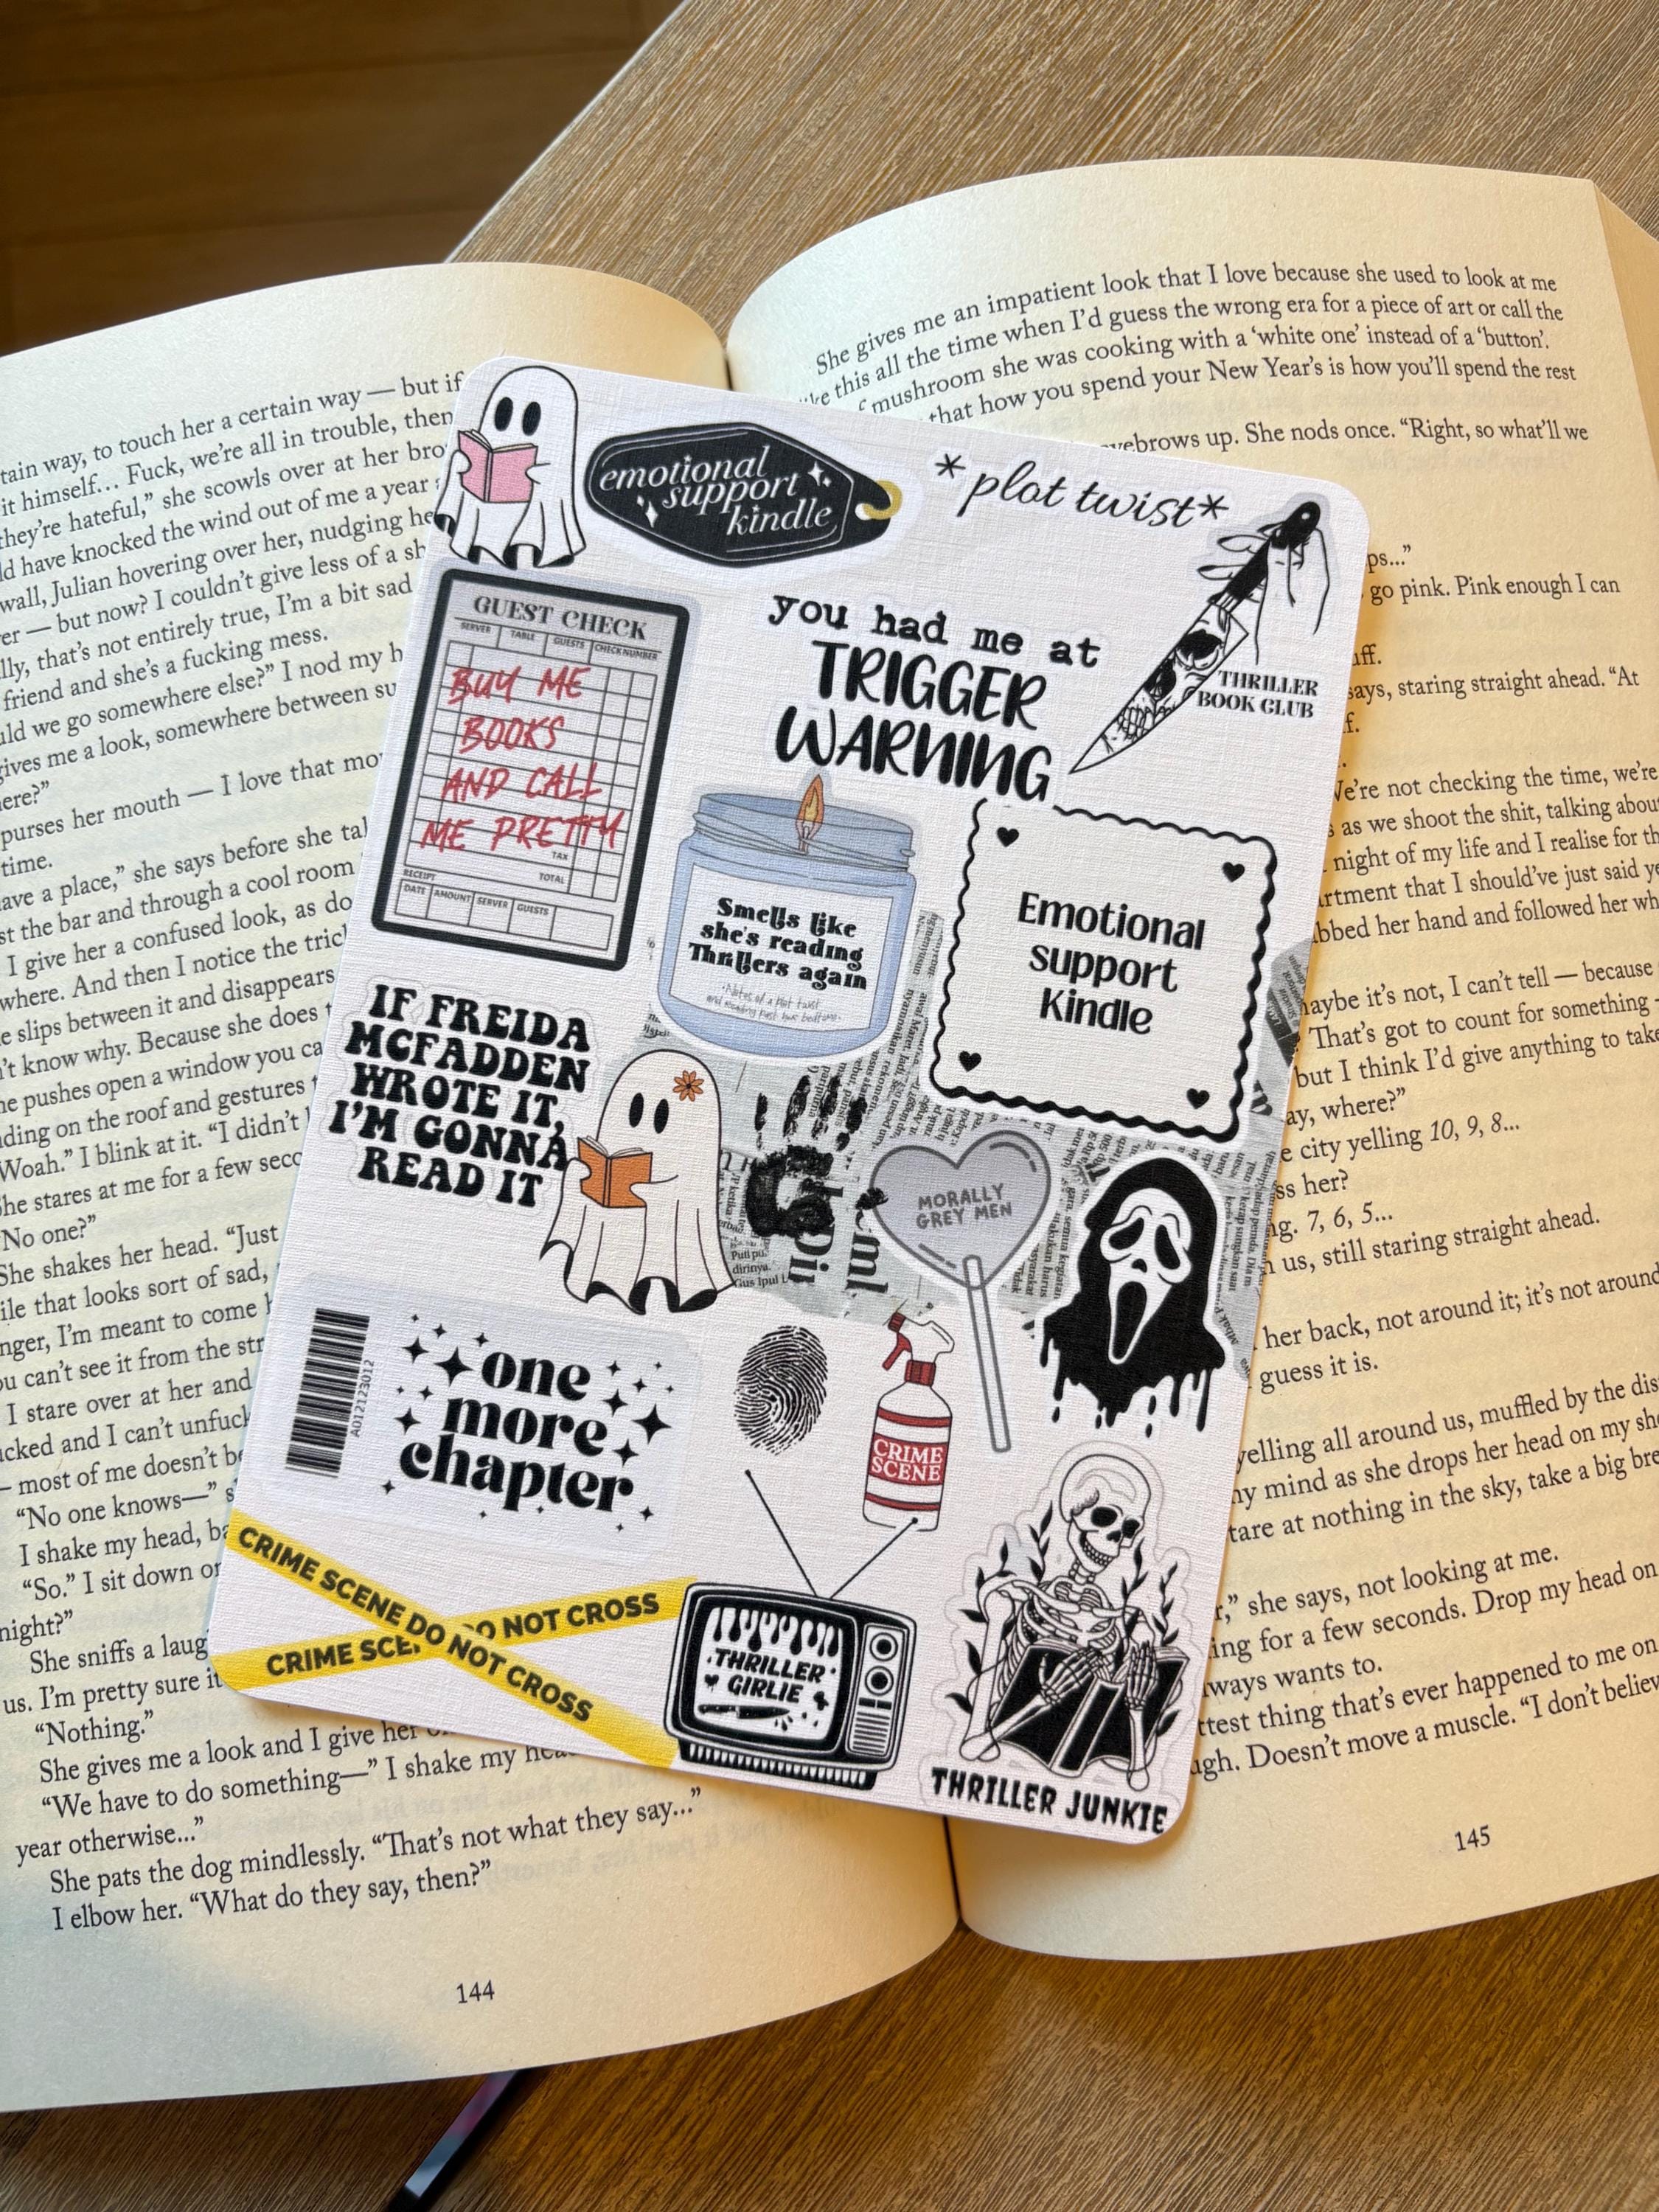 tain way, to touch her a certain way — but if
it himself… Fuck, we're all in trouble, then
they're hateful," she scowls over at her bro
ld have knocked the wind out of me a year
wall, Julian hovering over her, nudging he
er — but now? I couldn't give less of a sh
lly, that's not entirely true, I'm a bit sad
friend and she's a fucking mess.
uld we go somewhere else?" I nod my h
gives me a look, somewhere between su
here?"
purses her mouth — I love that mo
time.
ave a place," she says before she tal
st the bar and through a cool room
I give her a confused look, as do
where. And then I notice the tric
e slips between it and disappears
n't know why. Because she does t
he pushes open a window you ca
nding on the roof and gestures
Woah." I blink at it. "I didn't
She stares at me for a few seco
"No one?"
She shakes her head. "Just
ile that looks sort of sad,
nger, I'm meant to come
ou can't see it from the str
I stare over at her and
ucked and I can't unfuck
— most of me doesn't be
"No one knows—" s
I shake my head, ba
"So." I sit down or
night?"
She sniffs a laug
us. I'm pretty sure it
"Nothing."
She gives me a look and I give her
"We have to do something—" I shake my hea
year otherwise…"
She pats the dog mindlessly. "That's not what they say…"
I elbow her. "What do they say, then?"
144
emotional
support
kindle
*plot twist*
GUEST CHECK
SERVER TABLE GUESTS CHECK NUMBER
BUY ME
BOOKS
AND CALL
ME PRETTY
TAX
RECEIPT TOTAL
DATE AMOUNT SERVER GUESTS
you had me at
TRIGGER
WARNING
THRILLER
BOOK CLUB
Smells like
she's reading
Thrillers again
Emotional
support
Kindle
IF FREIDA
MCFADDEN
WROTE IT,
I'M GONNA
READ IT
MORALLY
GREY MEN
A012123012
one
more
chapter
CRIME
SCENE
CRIME SCENE DO NOT CROSS
CRIME SCE DO NOT CROSS
THRILLER
GIRLIE
THRILLER JUNKIE
She gives me an impatient look that I love because she used to look at me
ke this all the time when I'd guess the wrong era for a piece of art or call the
mushroom she was cooking with a 'white one' instead of a 'button'.
that how you spend your New Year's is how you'll spend the rest
yebrows up. She nods once. "Right, so what'll we
ps…"
go pink. Pink enough I can
iff.
says, staring straight ahead. "At
f.
We're not checking the time, we're
as we shoot the shit, talking abou
night of my life and I realise for th
artment that I should've just said ye
bbed her hand and followed her wh
maybe it's not, I can't tell — because
That's got to count for something
but I think I'd give anything to take
ay, where?"
e city yelling 10, 9, 8…
ss her?
ng. 7, 6, 5…
us, still staring straight ahead.
her back, not around it; it's not around
guess it is.
yelling all around us, muffled by the dis
my mind as she drops her head on my sho
tare at nothing in the sky, take a big bre
r," she says, not looking at me.
ing for a few seconds. Drop my head on
lways wants to.
ttest thing that's ever happened to me on
ugh. Doesn't move a muscle. "I don't believ
145